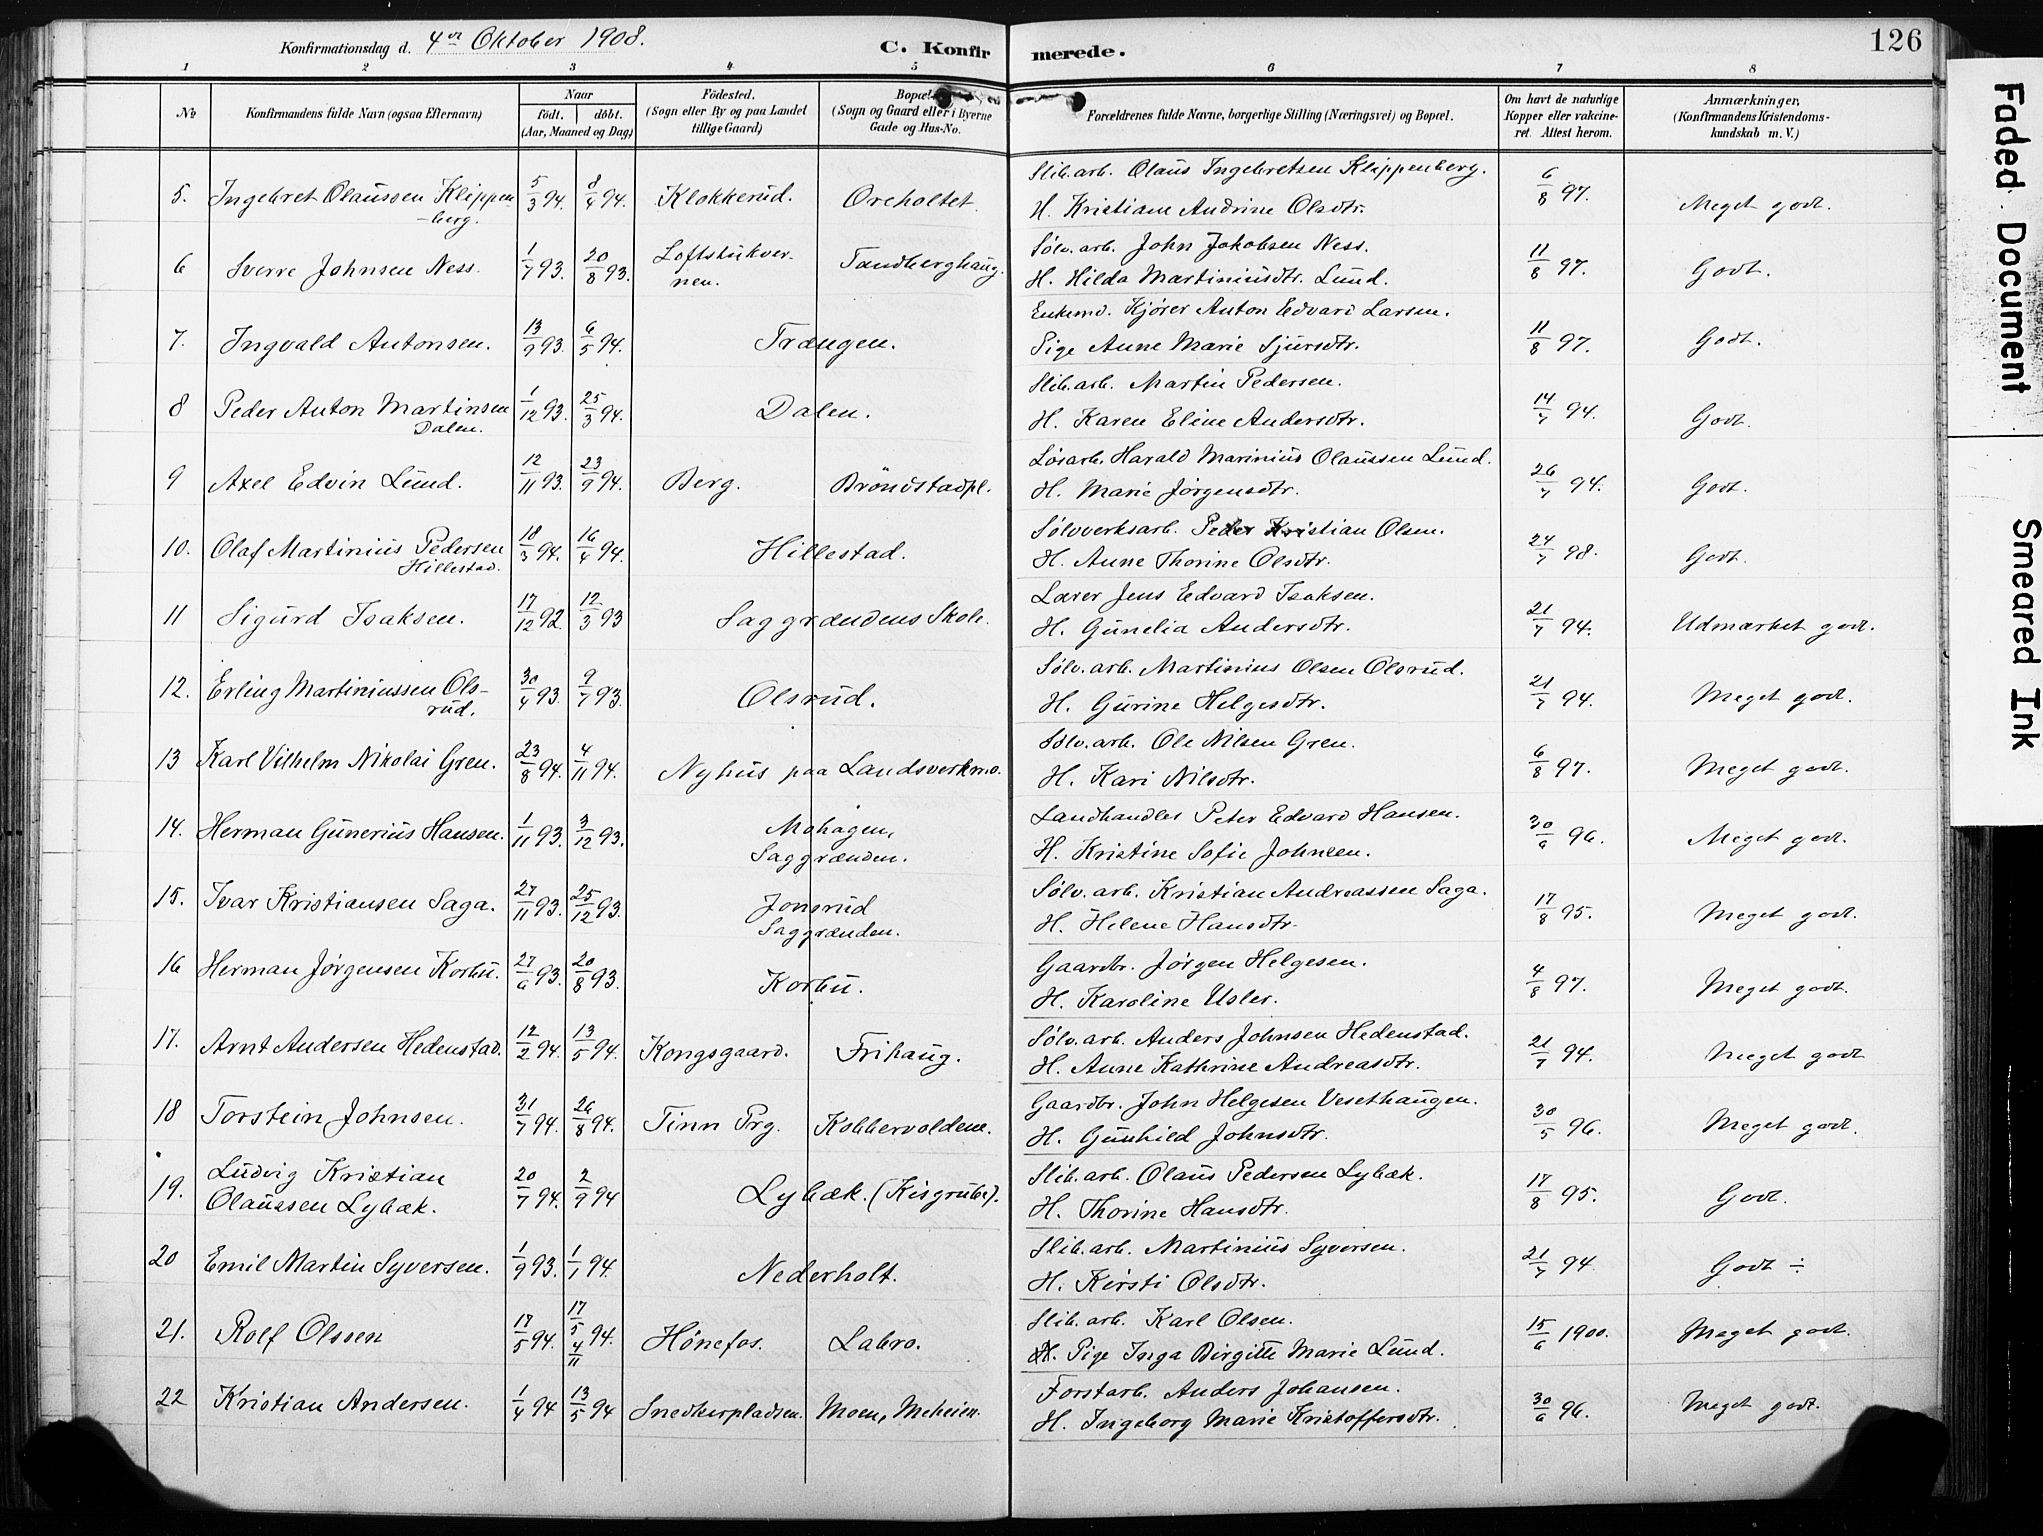 Konfirmationsdag d. 4de Oktober 1908.
C. Konfirmerede.
126
1 2 3 4 5 6 7 8
No
Konfirmandens fulde Navn (ogsaa Efternavn)
Naar
født. døbt.
(Aar, Maaned og Dag)
Fødested.
(Sogn eller By og paa Landet
tillige Gaard)
Bopæl
(Sogn og Gaard eller i Byerne
Gade og Hus-No.
Forældrenes fulde Navne, borgerlige Stilling (Næringsvei) og Bopæl.
Om havt de naturlige
Kopper eller vakcine-
ret. Attest herom.
Anmærkninger,
(Konfirmandens Kristendoms-
kundskab m. V.)
5. Ingebret Olaussen Klippen- 5/3 94. 8/4 94. Klokkerud. Oreholtet. Slib.arb. Olaus Ingebretsen Klippenberg. 6/8 97. Meget godt.
berg. H. Kristiane Andrine Olsdtr.
6 Sverre Johnsen Ness. 1/7 93. 20/8 93. Loftstukver- Tandberghaug. Sølv.arb. John Jakobsen Ness. 11/8 97. Godt.
nen. H. Hilda Martiniusdtr. Lund.
7. Ingvald Antonsen. 13/9 93. 6/5 94. Trængen. Enkemd. Kjører Anton Edvard Larsen. 11/8 97. Godt.
Pige Anne Marie Sjursdtr.
8 Peder Anton Martinsen 1/12 93. 25/3 94. Dalen. Slib.arb. Martin Pedersen. 14/7 94. Godt.
Dalen. H. Karen Eline Andersdtr.
9 Axel Edvin Lund. 12/11 93. 23/9 94. Berg. Brøndstadpl. Løsarb. Harald Marinius Olaussen Lund. 26/7 94. Godt.
H. Marie Jørgensdtr.
10. Olaf Martinius Pedersen 18/3 94. 16/4 94. Hillestad. Sølvverksarb. Peder Kristian Olsen. 24/7 98. Godt.
Hillestad. H. Anne Thorine Olsdtr.
11 Sigurd Isaksen. 17/12 92. 12/3 93 Saggrændens Skole. Lærer Jens Edvard Isaksen. 21/7 94. Udmærket godt.
H. Gunelia Andersdtr.
12. Erling Martiniussen Ols- 30/4 93. 9/7 93. Olsrud. Sølv.arb. Martinius Olsen Olsrud. 21/7 94. Meget godt.
rud. H. Gurine Helgesdtr.
13 Karl Vilhelm Nikolai Gren. 23/8 94. 4/11 94. Nyhus paa Landsverkmo. Sølv.arb. Ole Nilsen Gren. 6/8 97. Meget godt.
H. Kari Nilsdtr.
14. Herman Gunerius Hansen. 1/11 93. 3/12 93. Mohagen, Landhandler Peter Edvard Hansen. 30/6 96. Meget godt.
Saggrænden. H. Kristine Sofie Johnsen.
15. Ivar Kristiansen Saga. 27/11 93. 25/12 93. Jonsrud Sølv.arb. Kristian Andreassen Saga. 17/8 95. Meget godt.
Saggrænden. H. Helene Hansdtr.
16 Herman Jørgensen Korbu. 27/6 93. 20/8 93. Korbu. Gaardbr. Jørgen Helgesen. 4/8 97. Meget godt.
H. Karoline Usler.
17. Arnt Andersen Hedenstad. 12/2 94. 13/5 94. Kongsgaard. Frihaug. Sølv.arb. Anders Johnsen Hedenstad. 21/7 94. Meget godt
H. Anne Kathrine Andreasdtr.
18 Torstein Johnsen. 31/7 94. 26/8 94. Tinn Prg. Kobbervoldene. Gaardbr. John Helgesen Vesethaugen. 30/5 96. Meget godt.
H. Gunhild Johnsdtr.
19. Ludvig Kristian 20/7 94. 2/9 94 Lybæk. (Kisgrube). Slib.arb. Olaus Pedersen Lybæk. 17/8 95. Godt.
Olaussen Lybæk. H. Thorine Hansdtr.
20 Emil Martin Syversen. 1/9 93. 1/1 94. Nederholt. Slib.arb. Martinius Syversen. 21/7 94 Godt ÷
H. Kirsti Olsdtr.
21. Rolf Olssen 17/5 94. 17/5 4/11 94. Hønefos. Labro. Slib.arb. Karl Olsen. 15/6 1900. Meget godt.
Pige Inga Birgitte Marie Lund.
22 Kristian Andersen. 1/4 94 13/5 94 Snedkerpladsen. Moen, Meheien. Forstarb. Anders Johansen. 30/6 96. Meget godt.
H. Ingeborg Marie Kristoffersdtr.
Faded Document
Smeared Ink